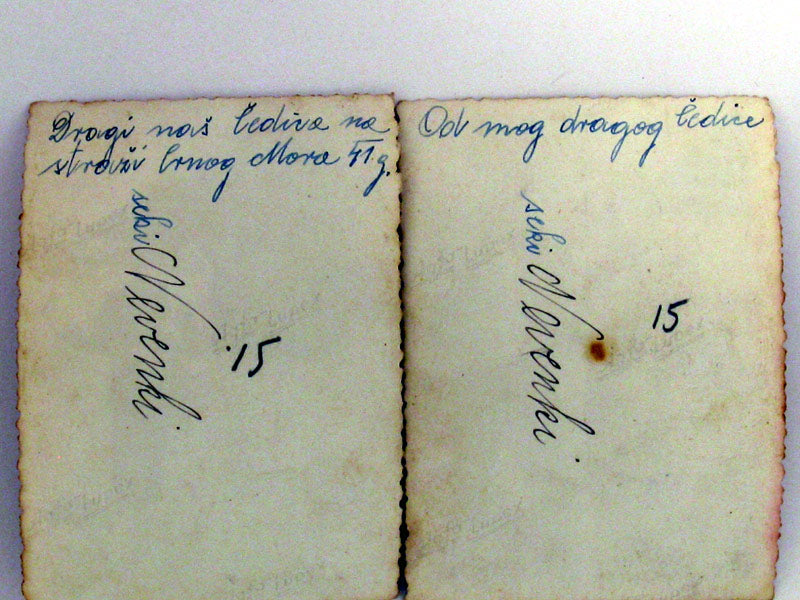 Dragi naš Čedica na
straži Crnog Mora 41.g.
seki Nevenki
15
Od mog dragog Čedice
seki Nevenki
15